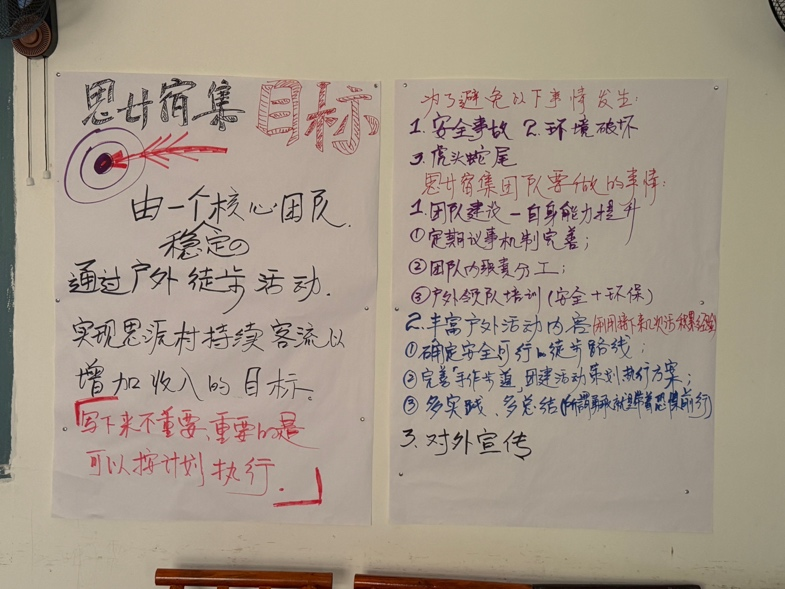 思廿宿集 目标
由一个核心团队
稳定の
通过户外徒步活动.
实现思派村持续客流以
增加收入的目标。
「写下来不重要、重要的是
可以按计划执行.」
为了避免以下事情发生:
1. 安全事故 2. 环境破坏
3. 虎头蛇尾
思廿宿集团队要做的事情:
1. 团队建设—自身能力提升
①定期议事机制完善;
②团队内职责分工;
③户外领队培训(安全+环保)
2. 丰富户外活动内容(利用接下来几次活动积累经验)
①确定安全可行の徒步路线;
②完善"手作步道、团建活动策划执行方案;
③多实践、多总结(所谓勇敢就是带着恐惧前行)
3. 对外宣传